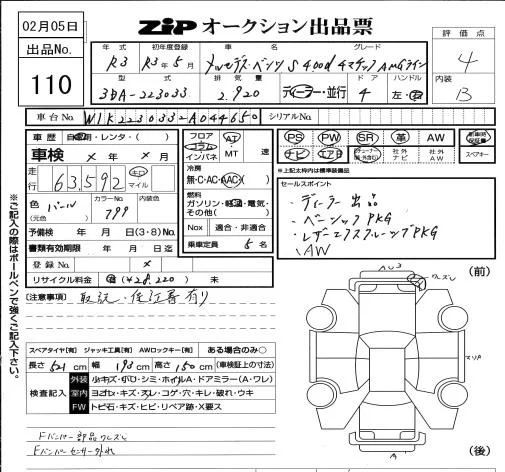 02月05日
ZIP オークション出品票
評価点
4
内装
B
出品No.
110
年式 初年度登録 車名 グレード
R3 R3年5月 メルセデス・ベンツ S400d 4マチック AMGライン
型式 排気量 ドア ハンドル
3DA-223033 2,920 ディーラー・並行 4 左・右
車台No. W1K2230332A044650 シリアルNo.
車歴 自家用・レンタ・( )
車検 × 年 × 月
走行 63,592 キロ マイル
色 パール カラーNo. 799 内装色
(元色)
予備検 年 月 日(3・8)No.
書類有効期限 年 月 日迄
登録No. ×
リサイクル料金 有(¥28,220) 未
フロア コラム インパネ AT MT 速
冷房 無・C・AC・AAC( )
燃料 ガソリン・軽油・電気・その他( )
Nox 適合・非適合
乗車定員 5名
PS PW SR 革 AW
ナビ エアB 社外ナビ 社外AW
スペアキー
*上記太枠内は標準装備品
セールスポイント
・ディーラー出品
・ベーシックPKG
・レザーエクスクルーシブPKG
・AW
[注意事項] 取説・保証書有り
スペアタイヤ[有] ジャッキ工具[有] AWロックキー[有] ある場合のみ○
長さ 521 cm 幅 193 cm 高さ 150 cm (車検証上の寸法)
検査記入
外装 小キズ・小凹・シミ・ホイルA・ドアミラー(A・ワレ)
室内 ヨゴレ・キズ・スレ・コゲ・穴・キレ・破れ・ウキ
FW トビ石・キズ・ヒビ・リペア跡・X要ス
Fバンパー部品ワレズレ
Fバンパーセンサー外れ
(前)
(後)
※ご記入の際はボールペンで強くご記入下さい。